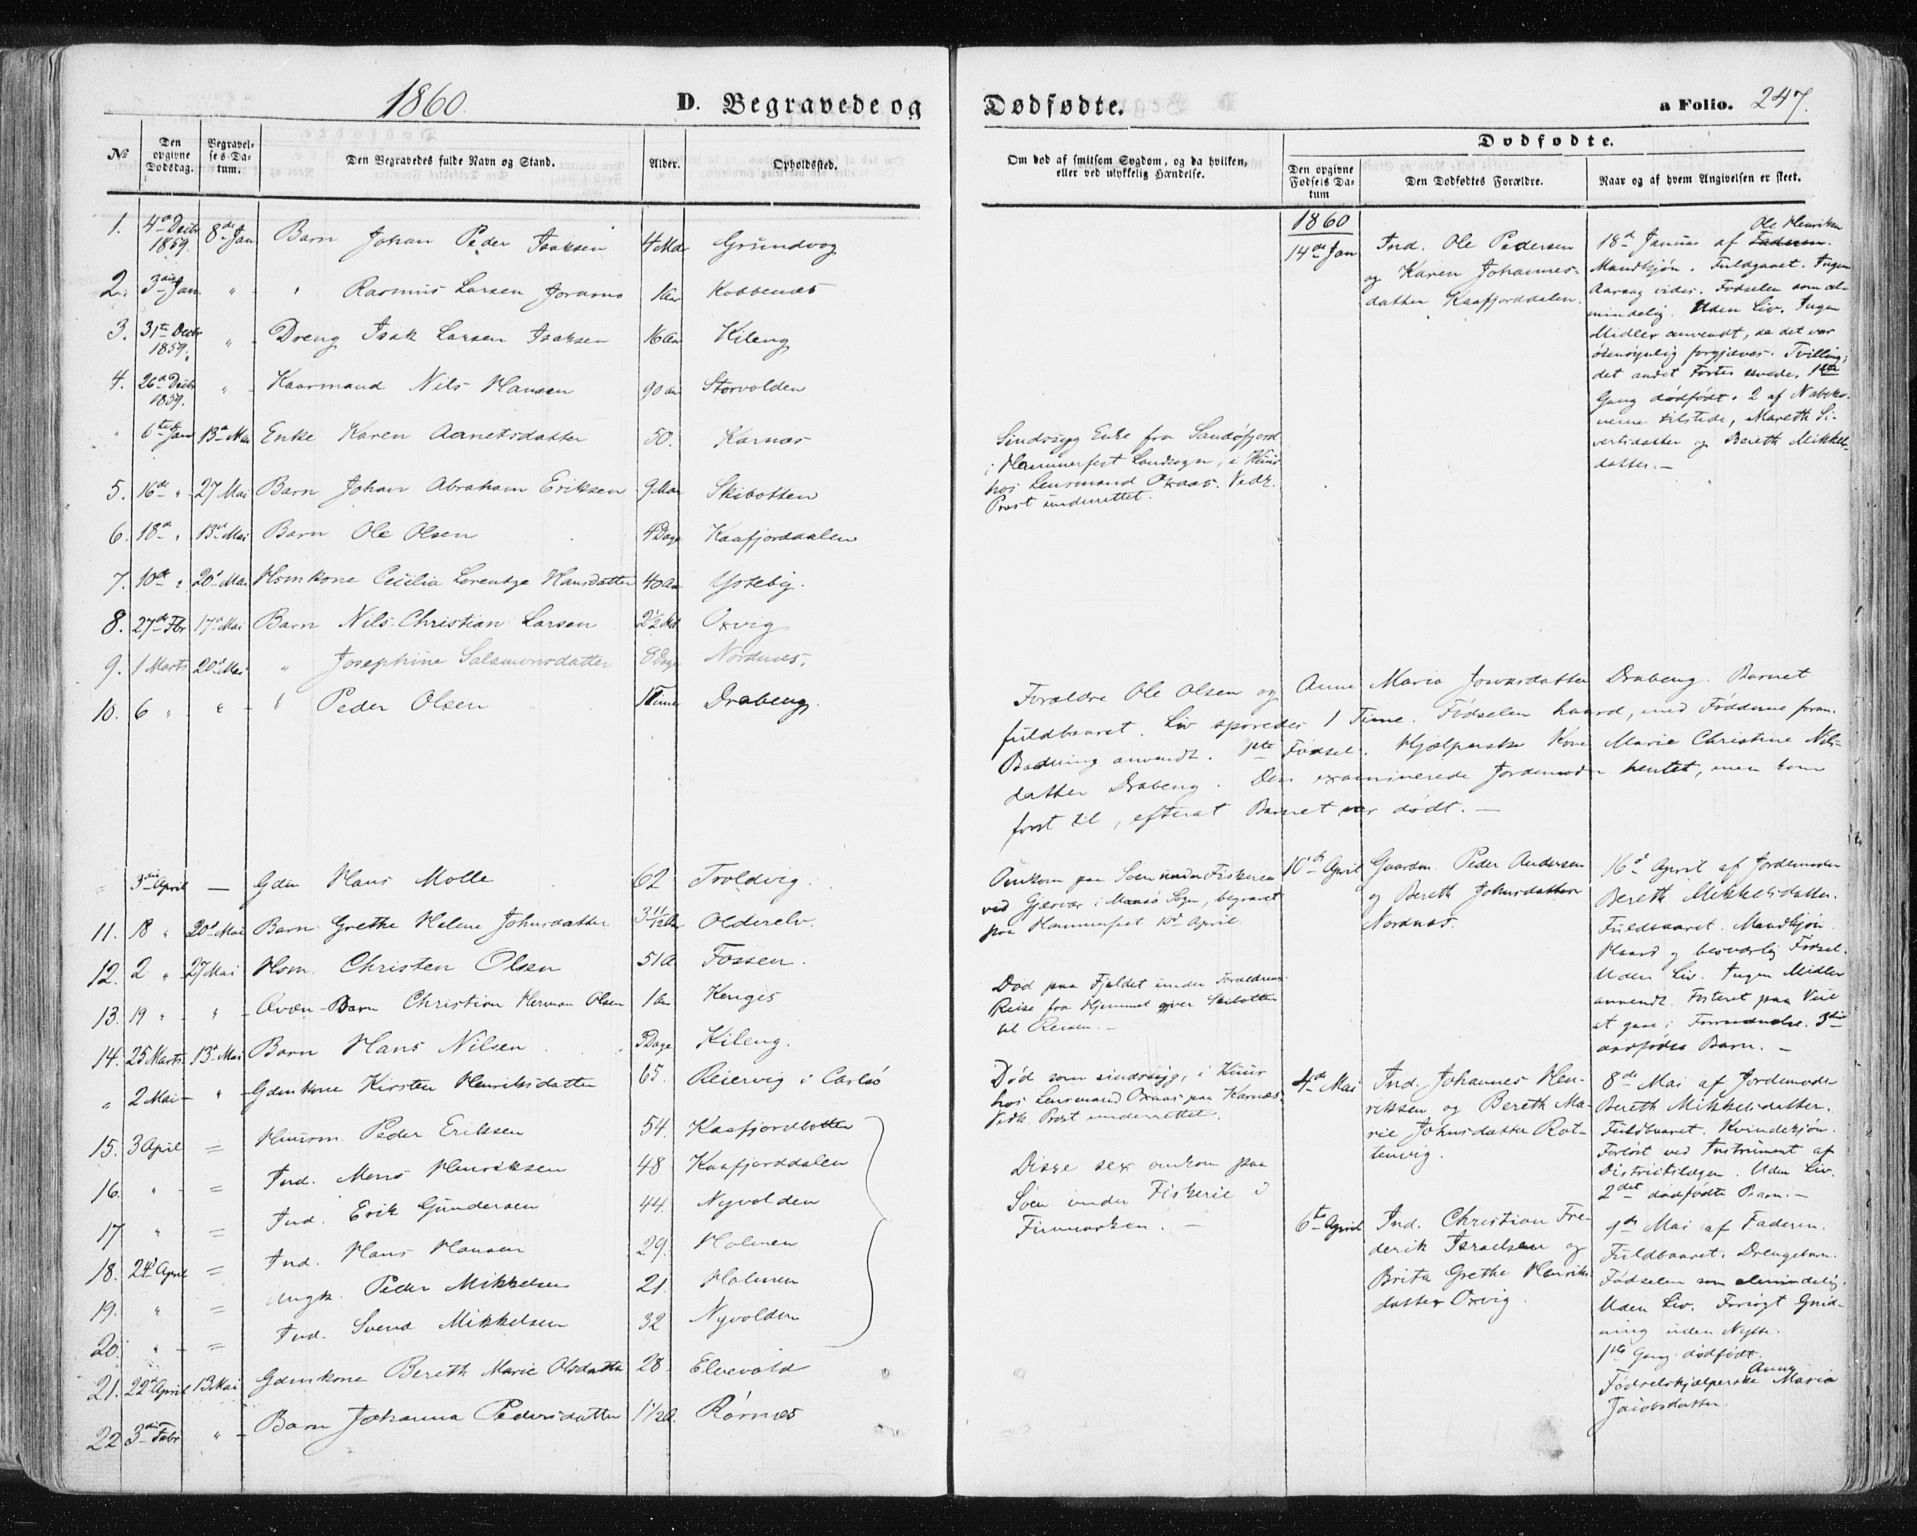 1860. D. Begravede og Dødfødte. a Folio. 247.
Dødfødte.
№ Den opgivne Dødsdag. Begravelses-Datum. Den Begravedes fulde Navn og Stand. Alder. Opholdssted. Om død af smitsom Sygdom, og da hvilken, eller ved ulykkelig Hændelse. Den opgivne Fødsels Datum Den Dødfødtes Forældre. Naar og af hvem Angivelsen er skeet.
1. 4de Decbr 1859. 8de Jan Barn Johan Peder Isaksen 4 Md Grundvog
2. 3die Jan " " Rasmus Larsen 1 Aar Kobbenes
3. 31te Decbr 1859. " Dreng Isak Larsen Isaksen 16 Aar Kileng
4. 26de Decbr 1859. " Kaarmand Nils Hansen 90 Aar Storvolden
" 6te Jan 13de Mai Enke Karen Arnetsdatter 50. Karnæs
5. 16de " 27 Mai Barn Johan Abraham Eriksen 9 Mdr Skibotten
6. 18de " 13de Mai Barn Ole Olsen 4 Dage Kaafjorddalen
7. 10de " 20de Mai Huskone Cecilia Lorentze Hansdatter 40 Aar Ysteby.
8. 27de Fbr 17de Mai Barn Nils Christian Larsen 2½ Md Oxvig
9. 1 Marts 20de Mai " Josephine Salamonsdatter 8 Dage Nordnes.
10. 6 " " " Peder Olsen 1 Time Drabeng.
" 3die April — Gdm Hans Molle 62 Troldvig.
11. 18 " 20de Mai Barn Grethe Helene Johnsdatter 3 11/12 Aar Olderelv.
12. 2 " 27 Mai Hsm. Christen Olsen 51 A Fossen.
13. 19 " " Qvæn-Barn Christian Herman Olsen 1 Aar Kengis
14. 25 Marts 13de Mai Barn Hans Nilsen 3 Dage Kileng.
" 2 Mai " Gdmkone Kirsten Henriksdatter 65. Reiervig i Carlsö
15. 3 April = Huusm. Peder Eriksen 54. Kaafjordbotten
16. " = Ind. Mons Henriksen 48 Kaafjorddalen
17. " = Ind. Erik Gundersen 44. Nyvolden
18. 24de April = Ind. Hans Hansen 29. Holmen
19. " = Ungk. Peder Mikkelsen 21. Holmen
20. " = Ind. Svend Mikkelsen 32 Nyvolden
21. 22de April 13 Mai Gdmkone Bereth Marie Olsdatter 28 Elvevold
22 3die Febr " Barn Johanna Pedersdatter 1½ A. Rørnes
Sindssyg Enke fra Sandøfjord
i Hammerfest Landsogn, i Kuur
hos Lensmand Oxaas. Vedk.
Præst underrettet.
Forældre Ole Olsen og Anne Maria Josvasdatter Drabeng. Barnet
fuldbaaret. Liv sporedes 1 Time. Fødselen haard, med Fødderne foran.
Badning anvendt. 1ste Fødsel. Hjælperske Kone Marie Christine Nils-
datter Drabeng. Den examinerede Jordemoder hentet, men kom
først til, efterat Barnet var dødt. —
Omkom paa Søen under Fiskerie
ved Gjesvær i Maasø Sogn, begravet
paa Hammerfest 10de April.
Død paa Fjeldet under Forældrenes
Reise fra Hjemmet over Skibotten
til Reisen. —
Død som sindssyg, i Kuur
hos Lensmand Oxaas paa Karnæs.
Vedk. Præst underrettet.
Disse sex omkom paa
Søen under Fiskerie i
Finmarken. —
1860
14de Jan Ind. Ole Pedersen
og Karen Johannes-
datter Kaafjorddalen.
18de Januar af Ole Henriksen
Mandkjøn. Fuldbaaret. Ingen
Aarsag vides. Fødselen som al-
mindelig. Uden Liv. Ingen
Midler anvendt, da det var
øiensynlig forgjæves. Tvilling;
det andet Foster 1ste
Gang dødfødt. 2 af Nabeko-
nerne tilstede, Mareth Si-
vertsdatter og Bereth Mikkels-
datter. —
10de April Gaardm. Peder Andersen
og Bereth Johnsdatter
Nordnæs.
16de April af Jordemoder
Bereth Mikkelsdatter.
Fuldbaaret. Mandkjøn.
Haard og besværlig Fødsel.
Uden Liv. Ingen Midler
anvendt. Fosteret paa Veie
at gaae i Forraadnelse. 3die
dødfødte Barn. —
4de Mai Ind. Johannes Hen-
riksen og Bereth Ma-
rie Johnsdatter Rot-
tenvig.
8de Mai af Jordemoder
Bereth Mikkelsdatter.
Fuldbaaret. Kvindekjøn.
Forløst ved Instrument af
Districtslægen. Uden Liv.
2det dødfødte Barn. —
6te April Ind. Christian Fre-
derik Israelsen og
Brita Grethe Henriks-
datter Oxvig.
9de Mai af Faderen.
Fuldbaaret. Drengebarn.
Fødselen som almindelig.
Uden Liv. Forsøgt Gnid-
ning uden Nytte.
1ste Gang dødfødt.
Fødselshjælperske Anne Maria
Jacobsdatter.